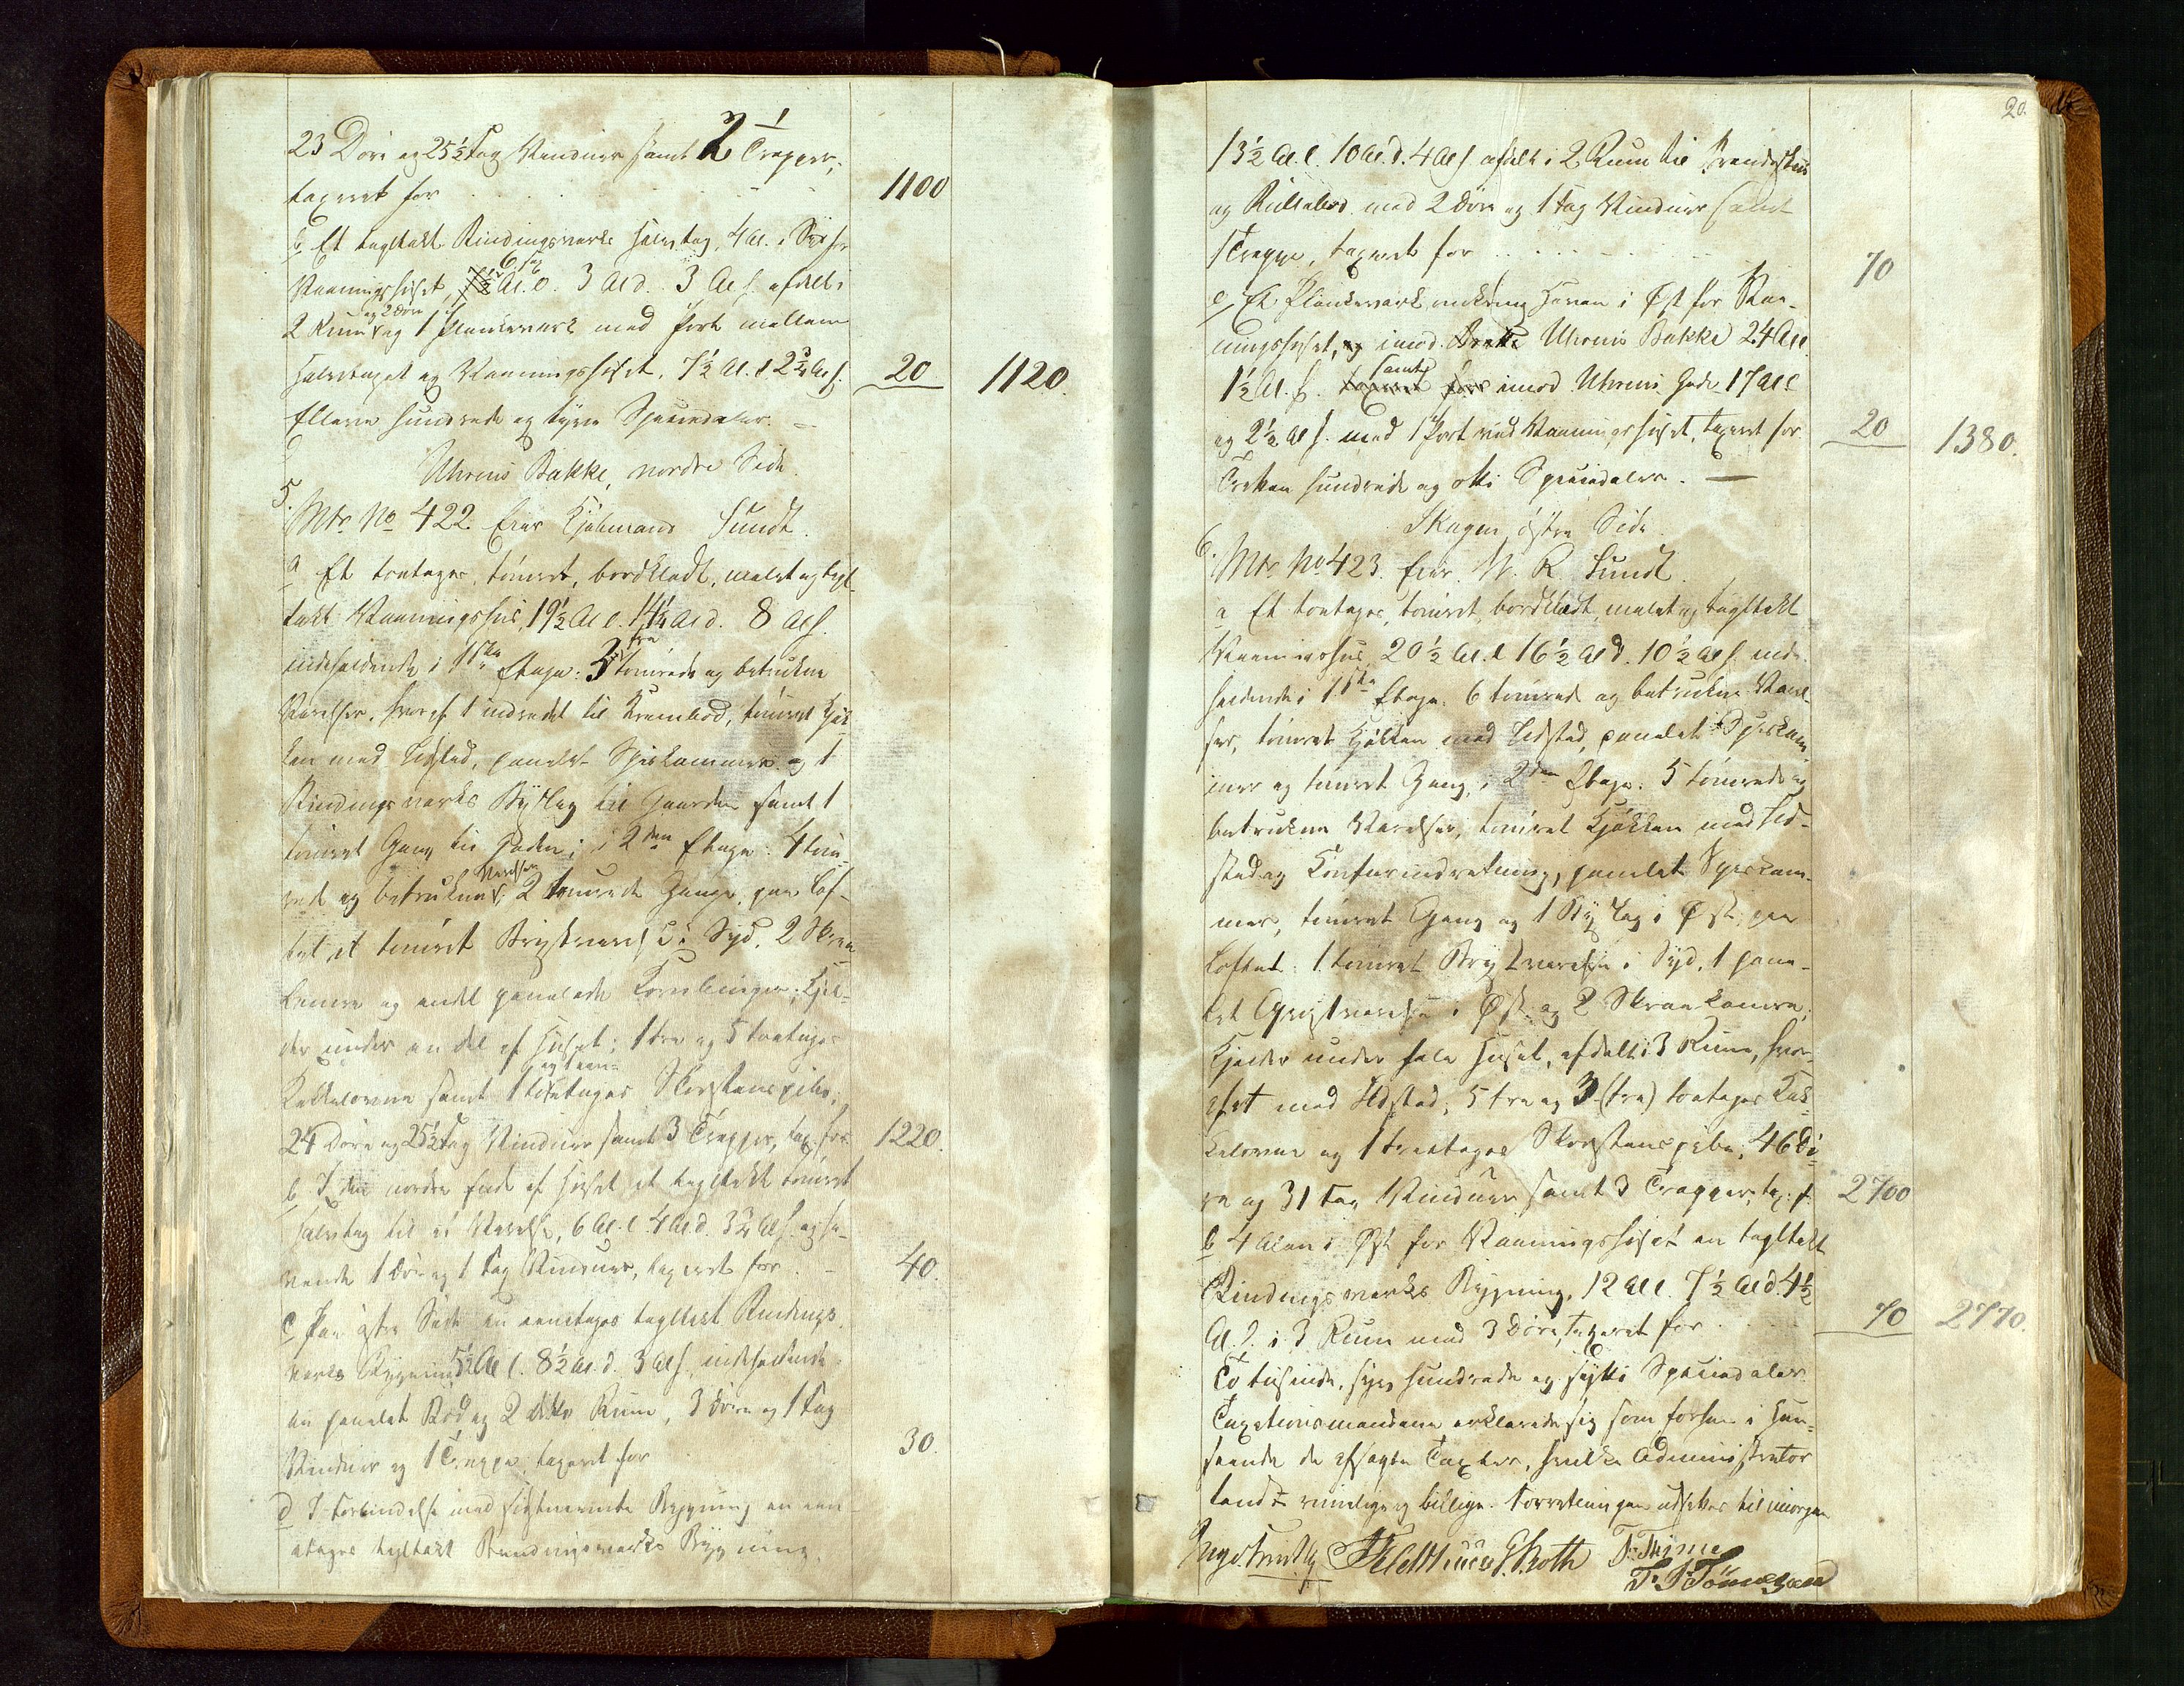 23 Døre og 25½ Fag Vinduer samt 2 Trapper,
taxeret for . . . 1100
b Et tagltakt Bindingsværks Halvtag, 4 Al. i Syd for
6 Al
Vaaningshuset, Al. l. 3 Al d. 3 Al h. afdelt i
og 2 Døre
2 Rum og 1 Plankeværk med Port mellem
Halvtaget og Vaaningshuset, 7½ Al. l 2¾ Al h. 20 1120.
Elleve hundrede og tyve Speciedaler. –
Uhrens Bakke, nordre Side.
5.
Mtr No 422 Eier Kjøbmand Sundt.
a Et toetages, tømret, bordklædt, malet og tagl-
takt Vaaningshus, 19½ Al l. 14½ Al d. 8 Al h.
indeholdende i 1ste Etage: 3 tre tømrede og betrukne
Værelser, hvoraf 1 indredet til Krambod, tømret Kjøk-
ken med Ildsted, panelet Spiskammer og 1
Bindingsværks Bislag til Gaarden samt 1
tømret Gang til Gaden; i 2den Etage: 4 tøm-
Værelser
rede og betrukne, 2 tømrede Gange, paa Lof-
tet et tømret Kvistværelse i Syd, 2 Skraa-
kamre og endel panelede Fornbinger; Kjel-
der under en del af Huset; 1 tre og 5 toetages
Kakkelovne samt 1 toetages Skorstenspibe,
24 Døre og 25½ Fag Vinduer samt 3 Trapper, tax. for 1220.
b I den nordre Ende af Huset et tagltakt tømret
Halvtag til et Værelse, 6 Al. l. 4 Al d. 3½ Al h. og ha-
vende 1 Dør og 1 Fag Vinduer, taxeret for . – 40.
c Paa østre Side en eenetages tagltakt Bindings-
værks Bygning 5½ Al l. 8½ Al. d. 3 Al h. indeholdende
en panelet Bod og 2 dito Rum, 3 Døre og 1 Fag
Vinduer og 1 Trappe taxeret for 30.
d I Forbindelse med sidstnævnte Bygning en een-
etages tagltakt Bindingsværks Bygning,
20.
13½ Al. l. 10 Al. d. 4 Al h. afdelt i 2 Rum til Brændehus
og Rullebod med 2 Døre og 1 Fag Vinduer samt
1 Trappe, taxeret for . . . 70
e Et Plankeværk omkring Haven i Øst for Vaa-
ningshuset, imod Uhrens Bakke 24 Al l.
samt
1½ Al. h. taxeret for imod Uhrens Gade 17 Al l
og 2½ Al h. med 1 Port ved Vaaningshuset, taxeret for 20 1380.
Tretten hundrede og otti Speciedaler. —
Skagen østre Side.
6. Mtr No 423. Eier W. R. Sundt.
a Et toetages, tømret, bordklædt, malet og tagltakt
Vaaningshus 20½ Al. l 16½ Al d. 10½ Al h. inde-
holdende i 1ste Etage: 6 tømrede og betrukne Værel-
ser, tømret Kjøkken med Ildsted, panelet Spiskam-
mer og tømret Gang, i 2den Etage: 5 tømrede og
betrukne Værelser, tømret Kjøkken med Ild-
sted og Komfurindretning, panelet Spiskam-
mer, tømret Gang og 1 Bislag i Øst; paa
Loftet: 1 tømret Kvistværelse i Syd, 1 pane-
let Kvistværelse i Øst og 2 Skraakamre;
Kjelder under hele Huset, afdelt i 3 Rum, hvor-
af et med Ildsted; 5 tre og 3 (tre) toetages Kak-
kelovne og 1 treetages Skorstenspibe, 46 Dø-
re og 31 Fag Vinduer samt 3 Trapper, tax: f. 2700
b 4 Alen i Øst for Vaaningshuset en tagltakt
Bindingsværks Bygning, 12 Al l. 7½ Al d. 4½
Al. h. i 3 Rum med 3 Døre, taxeret for . . . 70 2770.
To tusinde, syv hundrede og sytti Speciedaler.
Taxationsmændene erklærede sig som forhen i Hen-
seende de afsagte Taxter, hvilke Administrator
fandt rimelige og billige. Forretningen udsattes til imorgen
S. Roth T. Thime
T. T. Tønnesen